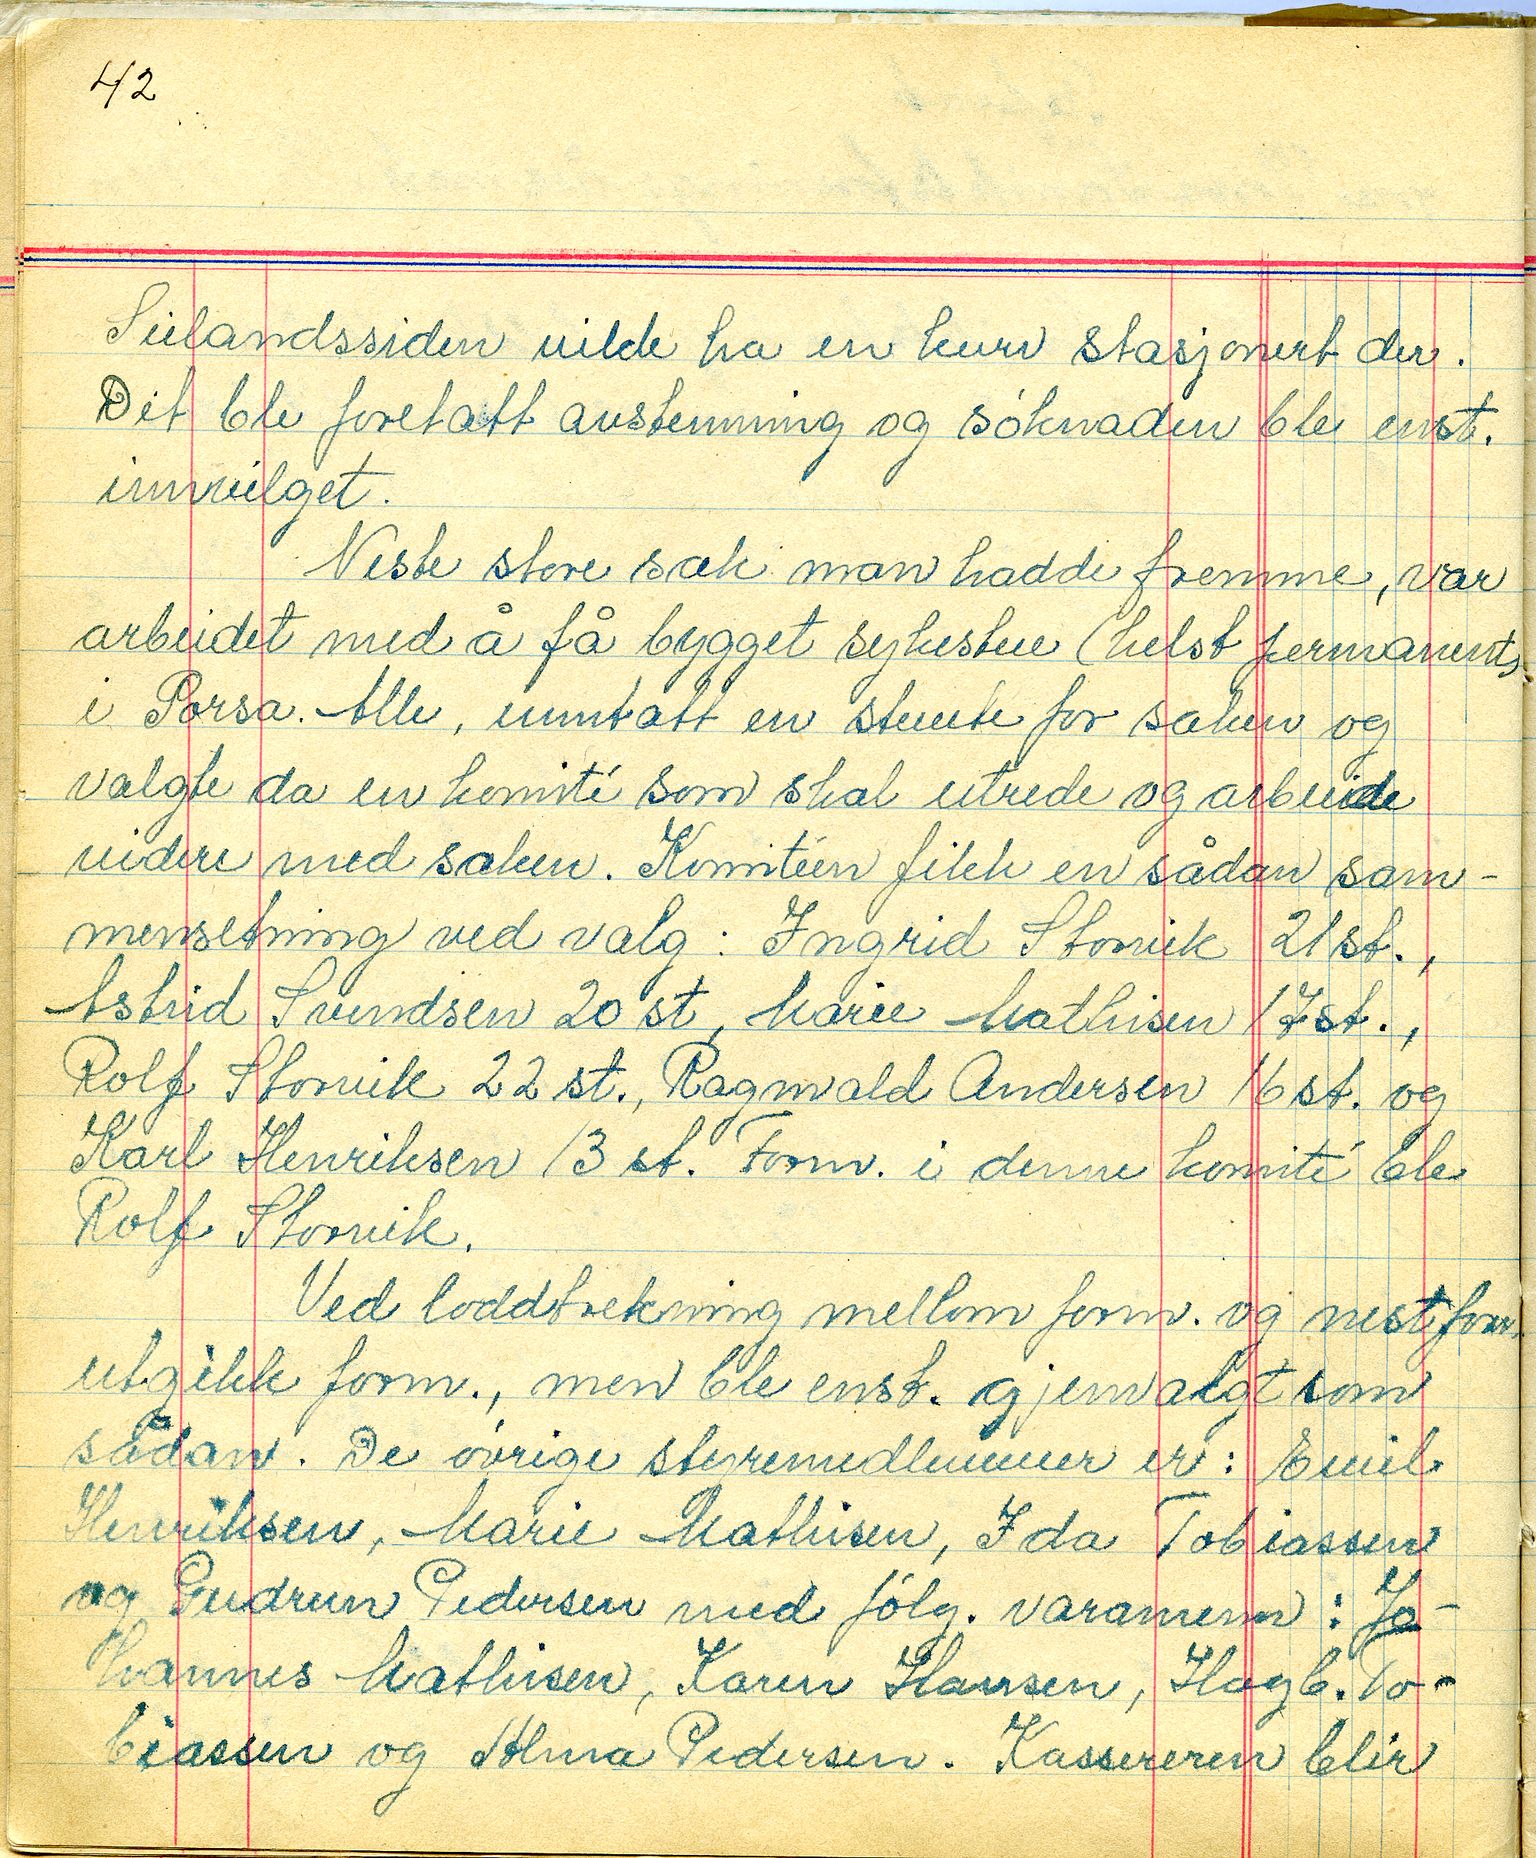 42
Seilandssiden vilde ha en kurv stasjonert der.
Det ble foretatt avstemning og söknaden ble enst.
innvilget.
Neste store sak man hadde fremme, var
arbeidet med å få bygget sykestue (helst permanent)
i Porsa. Alle, unntatt en stemte for saken og
valgte da en komité som skal utrede og arbeide
videre med saken. Komitéen fikk en sådan sam-
mensetning ved valg: Ingrid Storvik 21 st.,
Astrid Svendsen 20 st, Marie Mathisen 17 st.,
Rolf Storvik 22 st., Ragnvald Andersen 16 st. og
Karl Henriksen 13 st. Form. i denne komité ble
Rolf Storvik.
Ved loddtrekning mellom form. og nestform.
utgikk form., men ble enst. gjenvalgt som
sådan. De övrige styremedlemmer er: Emil
Henriksen, Marie Mathisen, Ida Tobiassen
og Gudrun Pedersen med fölg. varamenn: Jo-
hannes Mathisen, Karen Hansen, Hagb. To-
biassen og Alma Pedersen. Kassereren blir